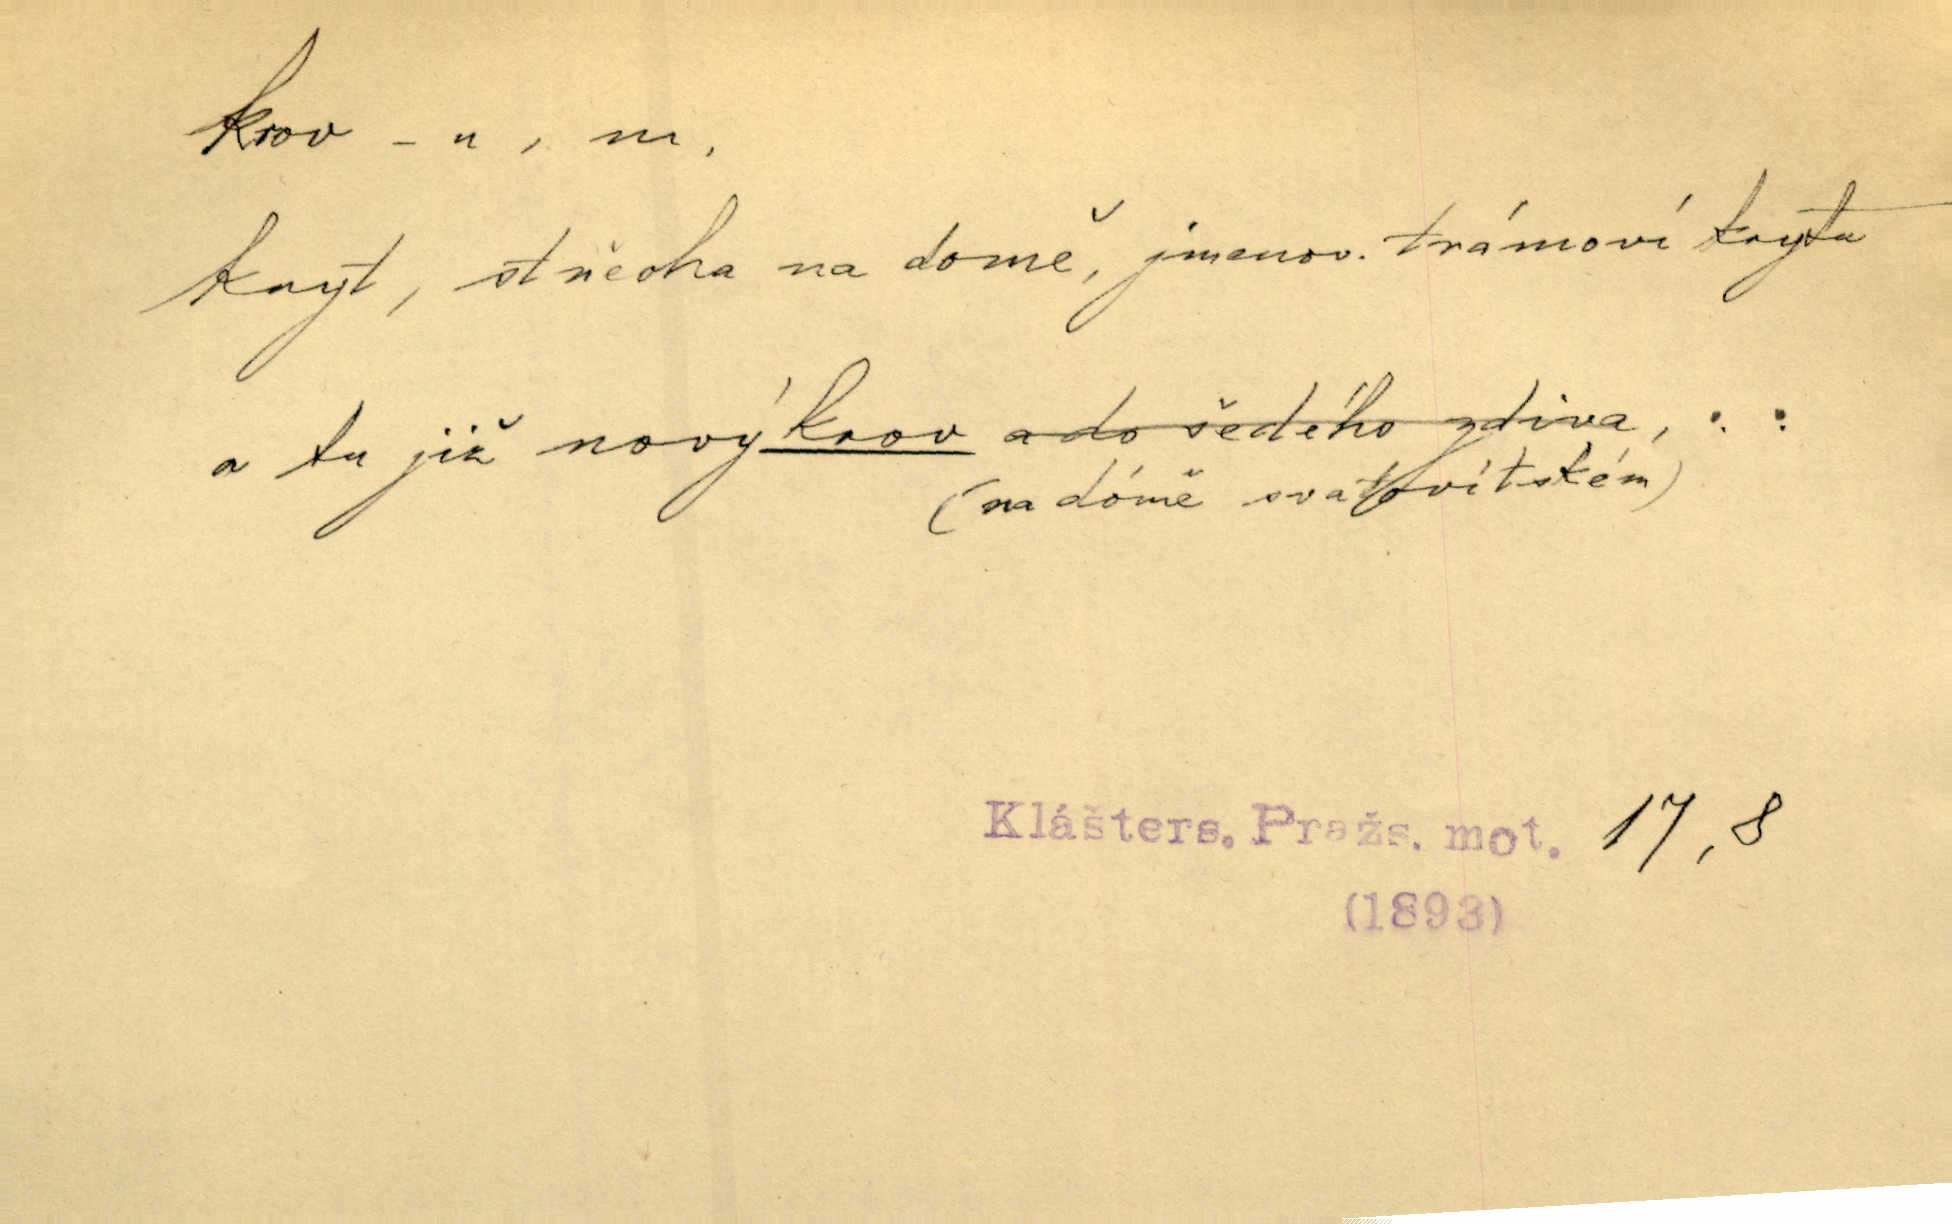 krov -u, m.
kryt, střecha na domě, jmenov. trámoví krytu
a tu již nový krov a do šedého zdiva, . :
(na dómě svatovítském)
Klášters. Pražs. mot. 17,8
(1893)